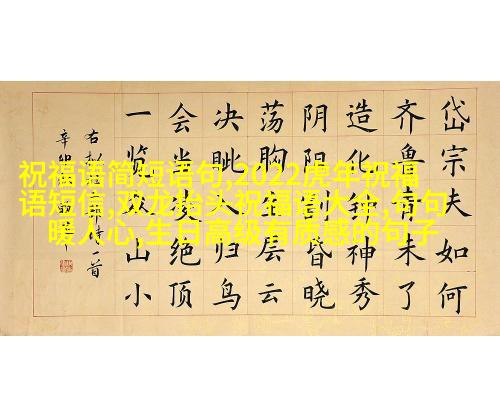 祝福语简短语句,2022虎年祝福
语短信,双龙抬头祝福语大全,句句
暖人心,生日高级有质感的句子
岱宗夫如何
齐鲁青未了
造化钟神秀
阴阳割昏晓
荡胸生层云
决眦入归鸟
会当凌绝顶
一览众山小
右诗一首
辛卯